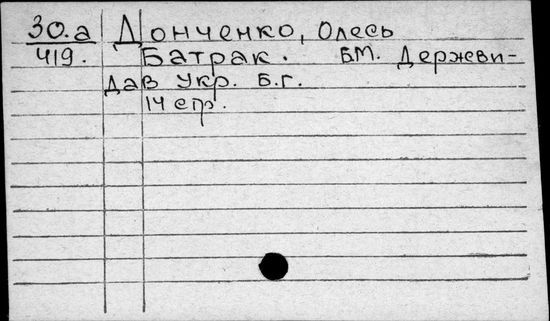 30.а Донченко, Олесь
419. Батрак. Б.М. Держви-
дав Укр. Б.г.
14 стр.